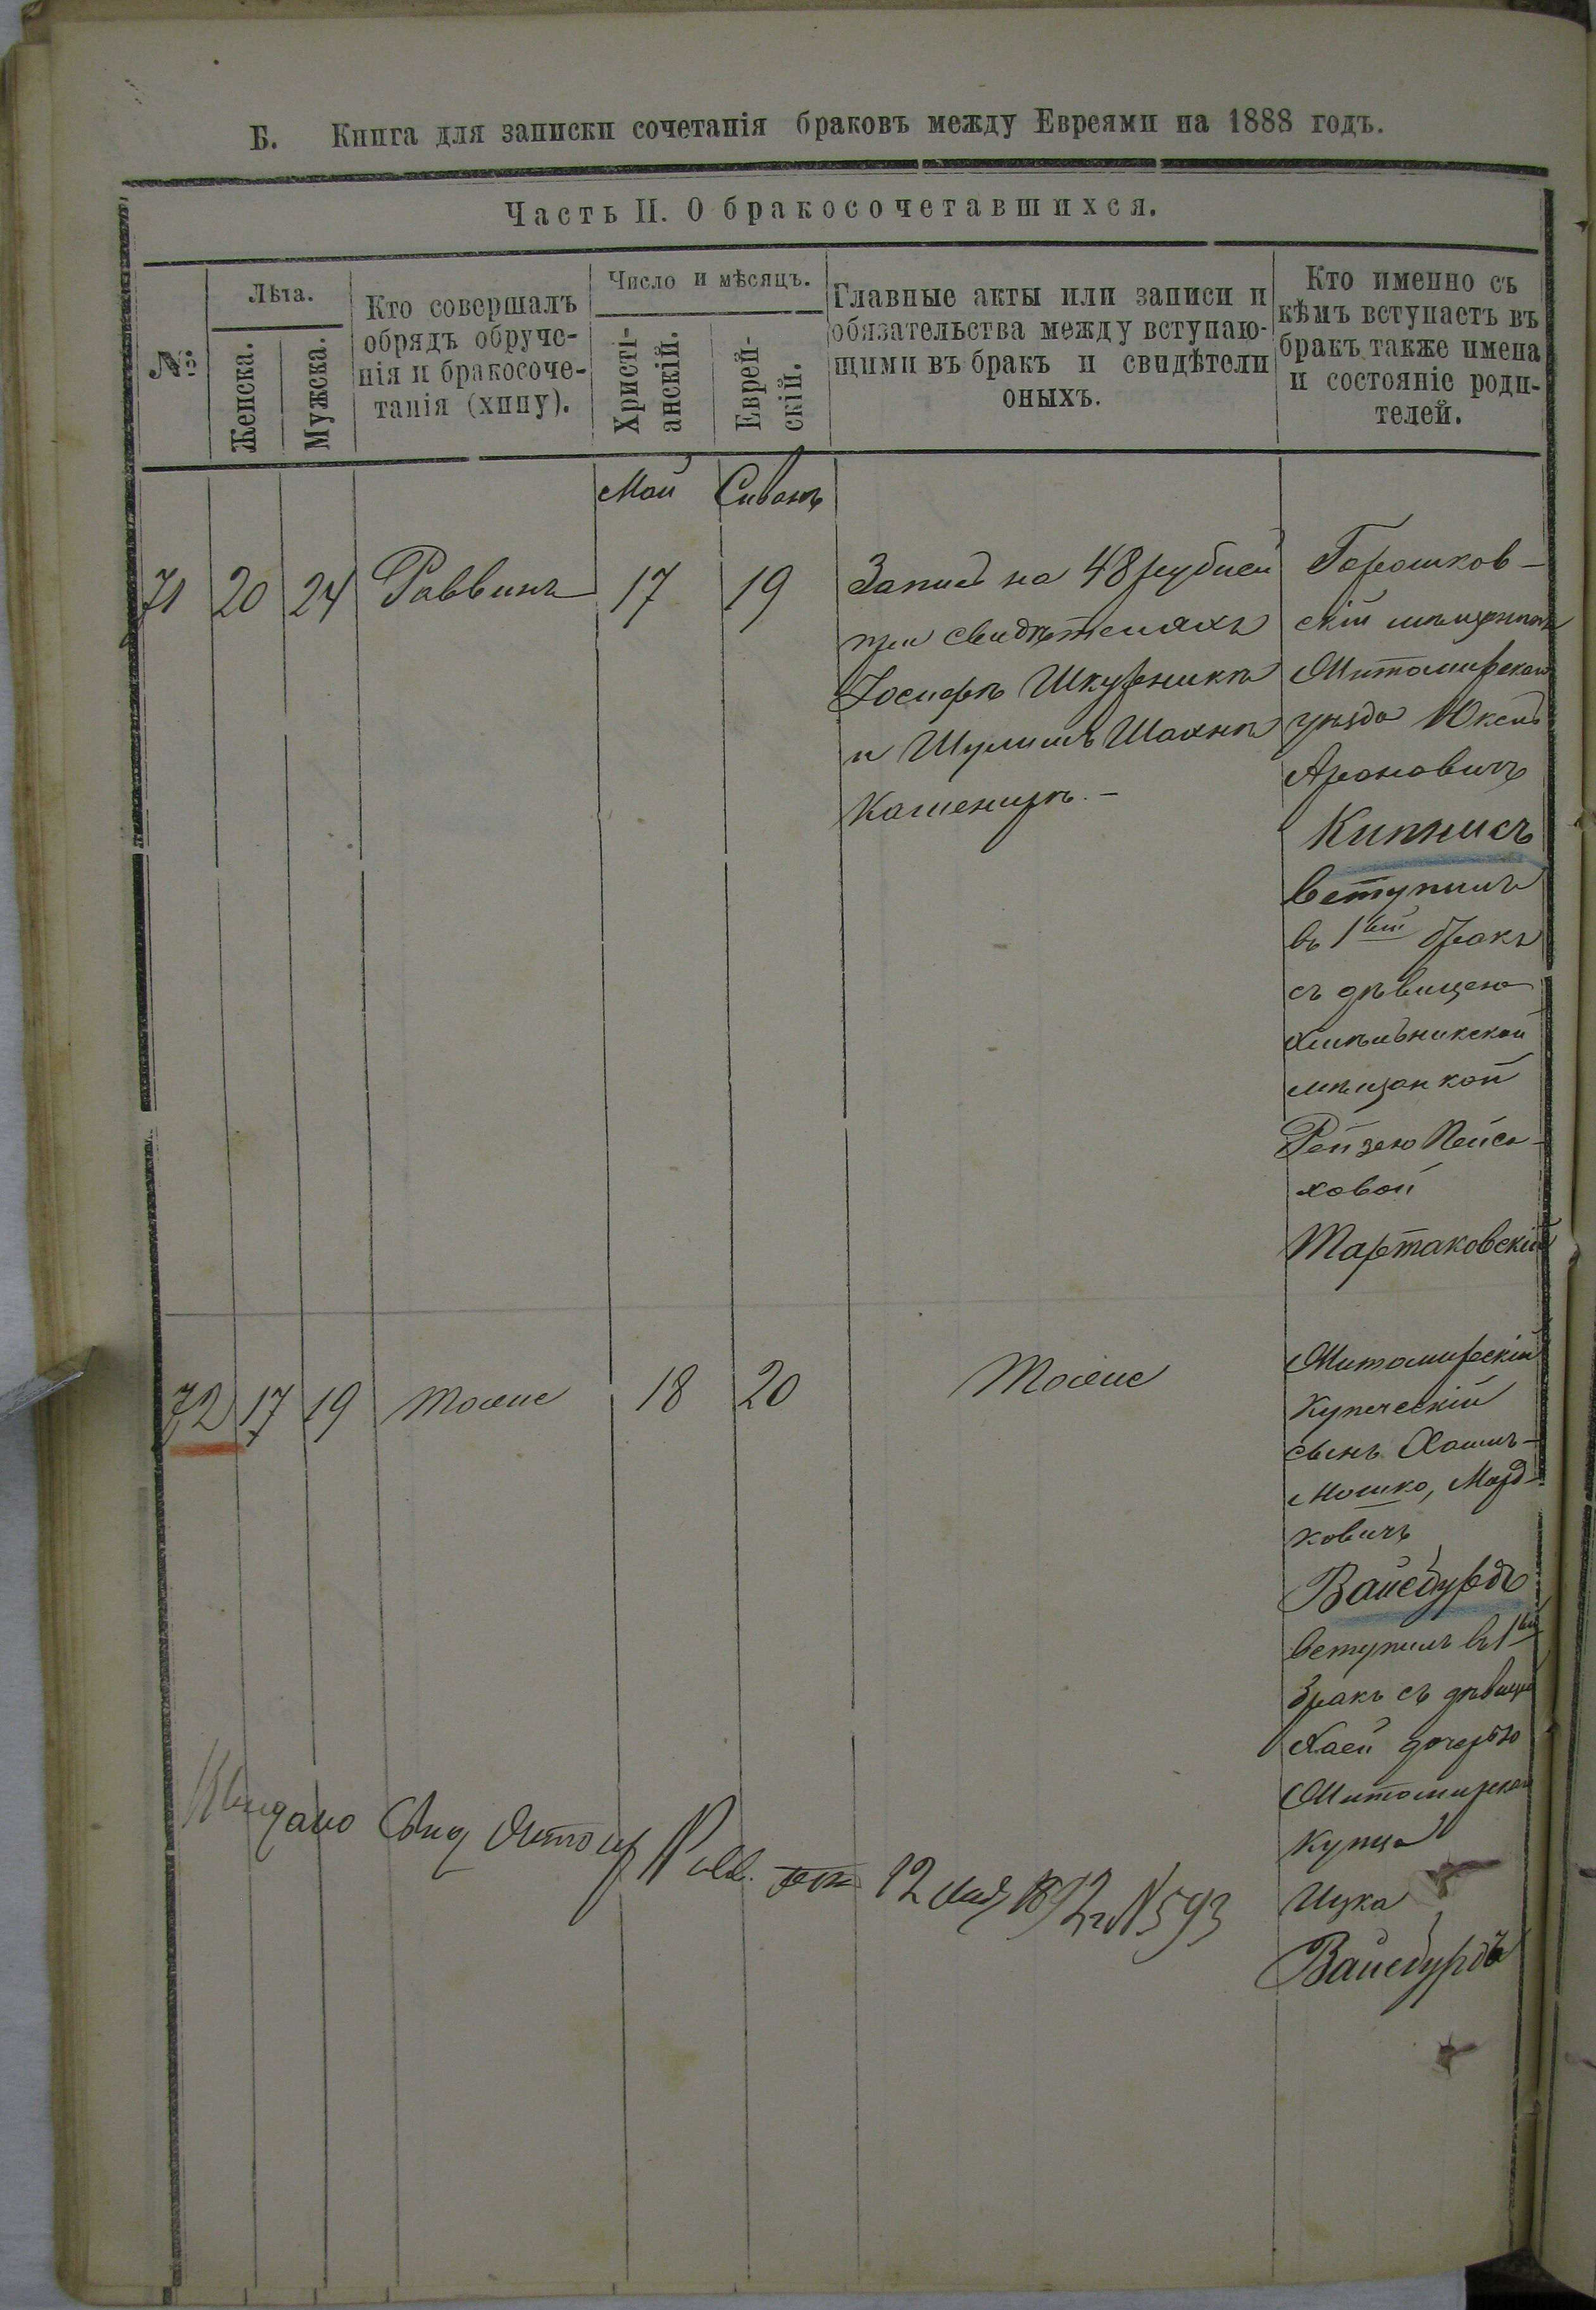 Б. Книга для записки сочетанія браковъ между Евреями на 1888 годъ.
Часть II. О бракосочетавшихся.
№
Лѣта.
Женска.
Мужска.
Кто совершалъ
обрядъ обруче-
нія и бракосоче-
танія (хипу).
Число и мѣсяцъ.
Христі-
анскій.
Еврей-
скій.
Главные акты или записи и
обязательства между вступаю-
щими въ бракъ и свидѣтели
оныхъ.
Кто именно съ
кѣмъ вступаетъ въ
бракъ также имена
и состояніе роди-
телей.
Май Сивань
71 20 24 Раввинъ 17 19
Запись на 48 рублей
при свидѣтеляхъ
Іосифѣ Шкурникѣ
и Шулимъ Шахнѣ
Горошков-
скій мѣщанинъ
Житомирскаго
уѣзда
Ароновичъ
Кипнисъ
вступилъ
въ 1ый бракъ
съ дѣвицею
Хмѣльникской
мѣщанкой
Рейзею Пейса-
ховой
Тартаковскій
72 17 19 тоже 18 20 Тоже
Житомирскій
купеческій
сынъ Хаимъ-
Мошко, Морд-
ковичъ
Вайсбурдъ
вступилъ въ 1ый
бракъ съ дѣвицей
Хаей дочерью
Житомирскаго
купца
Ицка
Вайсбурдъ
12 № 593